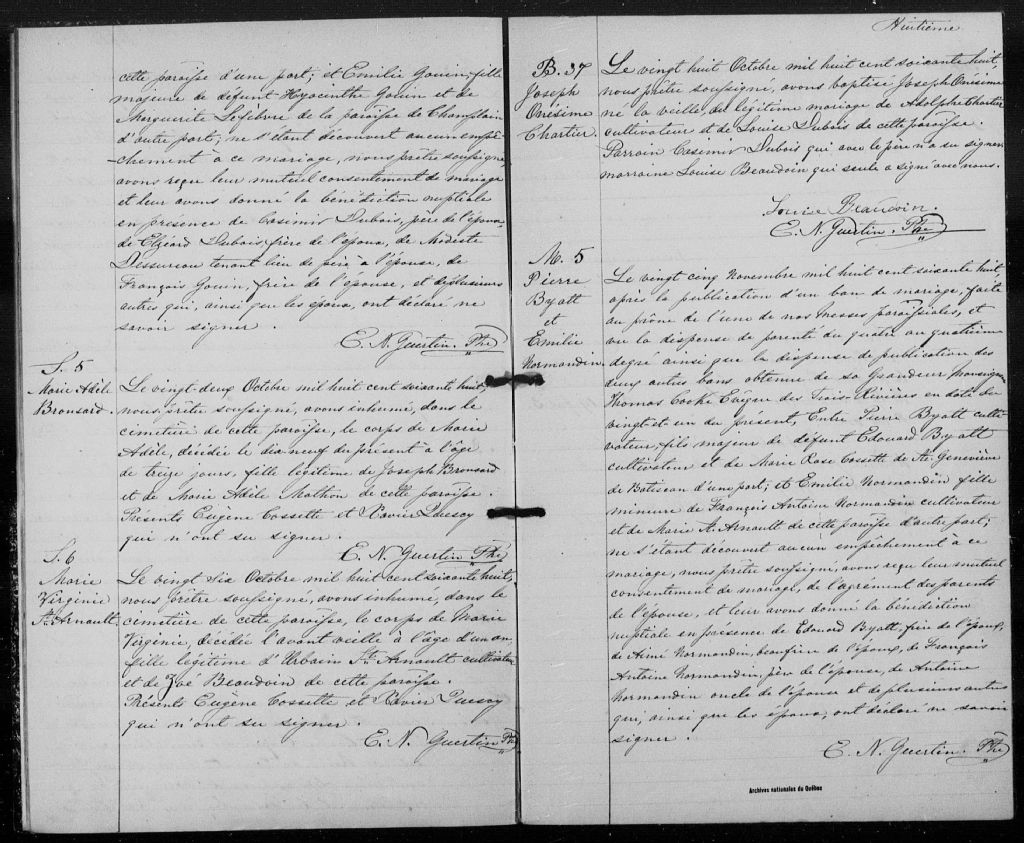 cette paroisse d'une part; et Emilie Gouin, fille
majeure de defunt Hyacinthe Gouin et de
Marguerite Lefebvre de la paroisse de Champlain
d'autre part; ne s'étant découvert aucun empê-
chement à ce mariage, nous prêtre soussigné
avons reçu leur mutuel consentement de mariage
et leur avons donné la bénédiction nuptiale
en présence de Casimir Dubois, père de l'époux
de Elzéard Dubois, frère de l'époux, de Modeste
Dessureau tenant lieu de père à l'épouse, de
François Gouin, frère de l'épouse, et de plusieurs
autres qui, ainsi que les époux, ont déclaré ne
savoir signer.
E. N. Guertin. Ptre
S. 5
Marie Adèle
Brousard
Le vingt-deux Octobre mil huit cent soixante huit,
nous prêtre soussigné, avons inhumé, dans le
cimetière de cette paroisse, le corps de Marie
Adèle, décédée le dix neuf du présent à l'âge
de treize jours, fille légitime de Joseph Brousard
et de Marie Adèle Mathon de cette paroisse.
Présents Eugène Cossette et Xavier Quessy
qui n'ont su signer.
E. N. Guertin Ptre
S. 6
Marie
Virginie
St. Arnault
Le vingt six Octobre mil huit cent soixante huit,
nous prêtre soussigné, avons inhumé, dans le
cemetière de cette paroisse, le corps de Marie
Virginie, décédée l'avant veille à l'âge d'un an
fille légitime d'Urbain St. Arnault cultivateur
et de Zoé Beaudoin de cette paroisse.
Présents Eugène Cossette et Xavier Quessy
qui n'ont su signer.
E. N. Guertin Ptre
Huitième
B. 37
Joseph
Onésime
Chartier.
Le vingt huit Octobre mil huit cent soixante huit,
nous prêtre soussigné, avons baptisé Joseph Onésime
né la veille, du légitime mariage de Adolphe Chartier
cultivateur et de Louise Dubois de cette paroisse.
Parrain Casemir Dubois qui avec le père n'a su signer
marraine Louise Beaudoin qui seule a signé avec nous.
Louise Beaudoin.
E. N. Guertin. Ptre
M. 5
Pierre
Byatt
et
Emilie
Normandin
Le vingt cinq Novembre mil huit cent soixante huit,
après la publication d'un ban de mariage, faite
au prône de l'une de nos Messes paroissiales, et
vu la dispense de parenté du quatre au quatrième
degré ainsi que la dispense de publication des
deux autres bans obtenue de sa Grandeur Monseigneur
Thomas Cooke Evêque des Trois-Rivières en date du
vingt et un du présent, Entre Pierre Byatt culti-
vateur, fils majeur de defunt Edouard Byatt
cultivateur et de Marie Rose Cossette de Ste Geneviève
de Batiscan d'une part; et Emilie Normandin fille
mineure de François Antoine Normandin cultivateur
et de Marie St. Arnault de cette paroisse d'autre part;
ne s'étant découvert aucun empêchement à ce
mariage, nous prêtre soussigné, avons reçu leur mutuel
consentement de mariage, de l'agrément des parents
de l'épouse, et leur avons donné la bénédiction
nuptiale en présence de Edouard Byatt, frère de l'époux,
de Aimé Normandin, beaufrère de l'époux, de François
Antoine Normandin, père de l'épouse, de Antoine
Normandin oncle de l'épouse et de plusieurs autres
qui, ainsi que les époux, ont déclaré ne savoir
signer.
E. N. Guertin. Ptre
Archives nationales du Québec